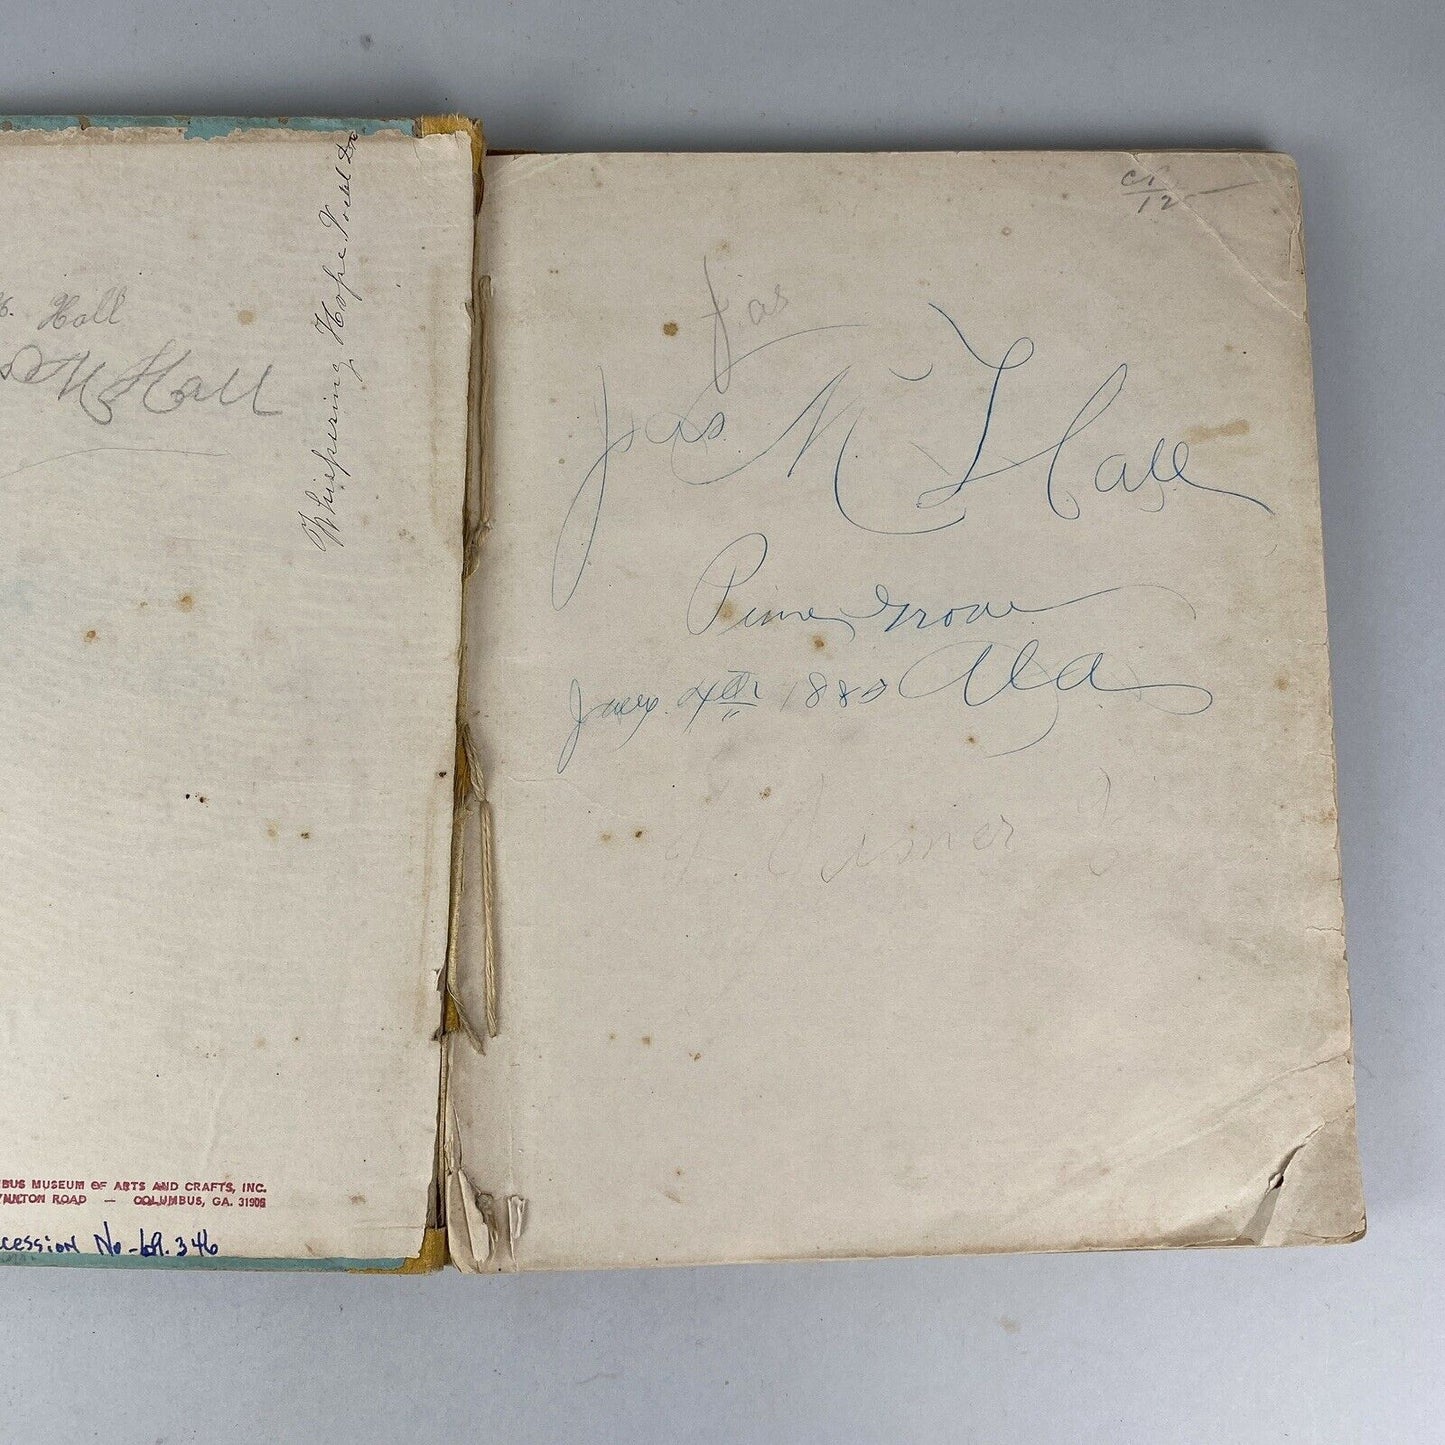 Hall
M Hall
Whispering Hope
BUS MUSEUM OF ARTS AND CRAFTS, INC.
NNTON ROAD — COLUMBUS, GA. 31906
cession No-69.346
Jas
Jas M Hall
Pine Grove
Ala.
4th 188